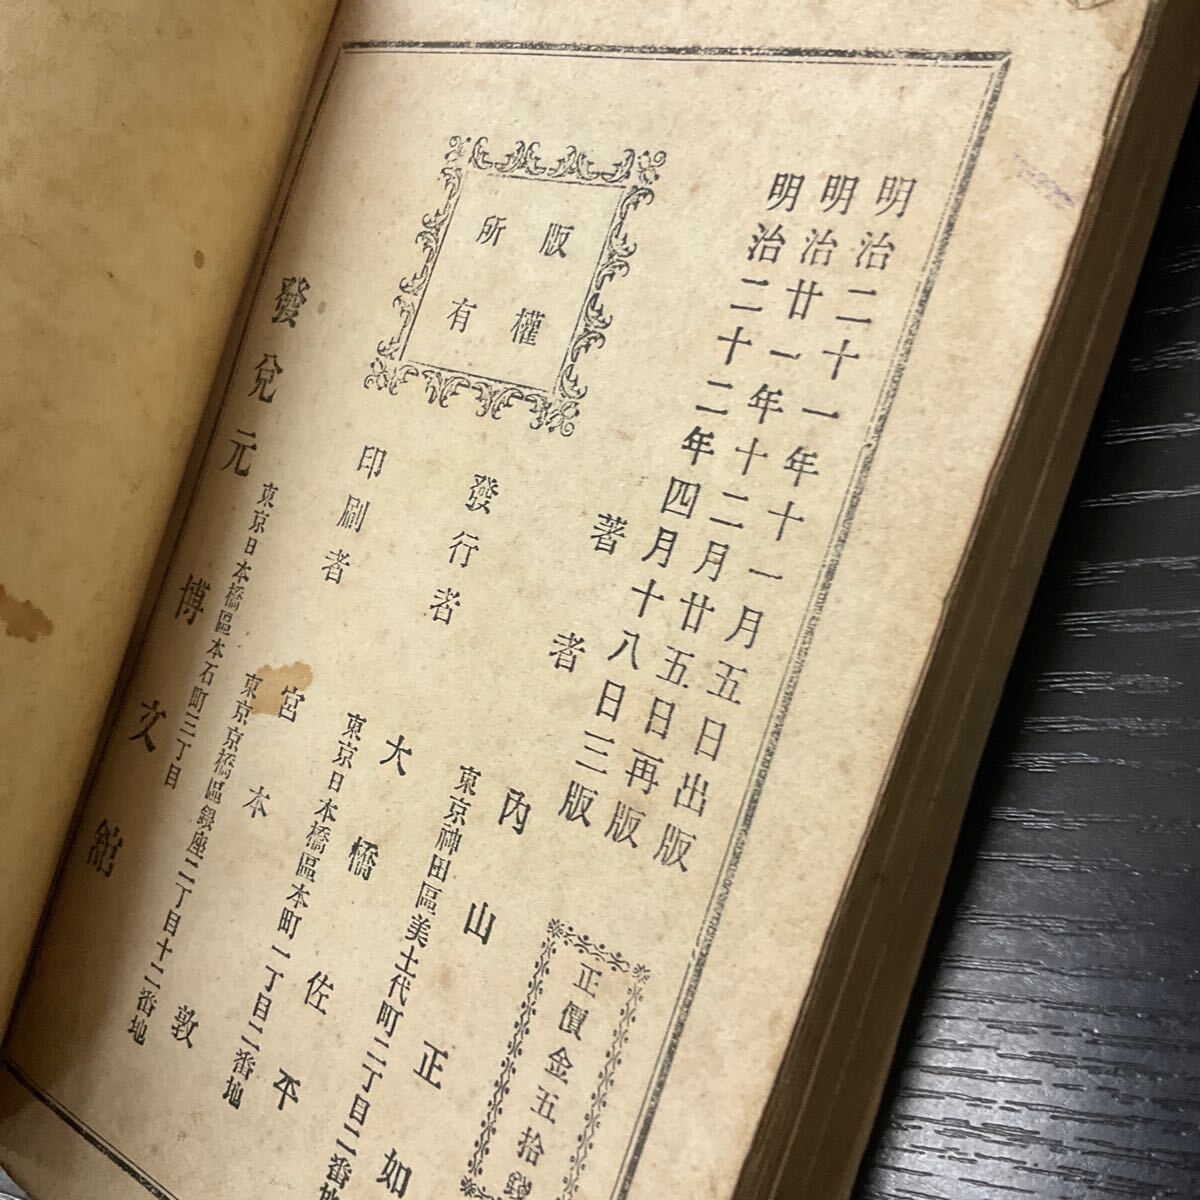 明治二十一年十一月五日出版
明治廿一年十二月廿五日再版
明治二十二年四月十八日三版
正價金五拾錢
版權
所有
著者
內山正如
東京神田區美土代町二丁目二番地
發行者
大橋佐平
東京日本橋區本町一丁目二番地
印刷者
宮本敦
東京京橋區銀座二丁目十二番地
發兌元
東京日本橋區本石町三丁目
博文舘